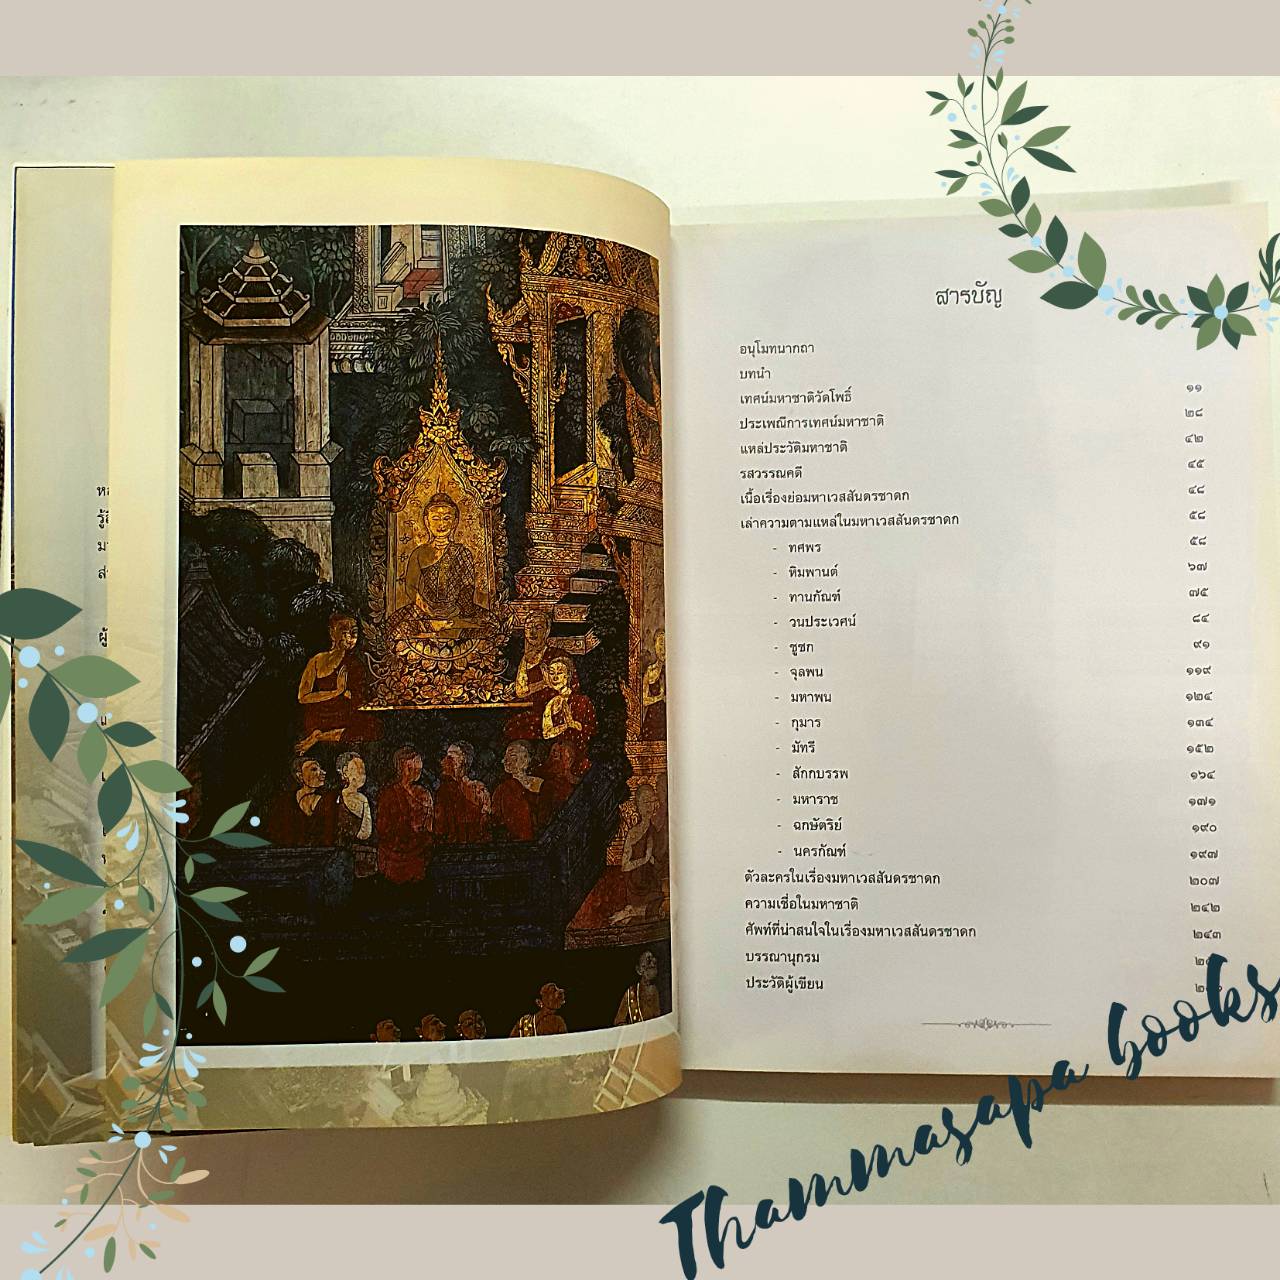 สารบัญ
อนุโมทนากถา
บทนำ
เทศน์มหาชาติวัดโพธิ์ ๑๑
ประเพณีการเทศน์มหาชาติ ๒๘
แหล่ประวัติมหาชาติ ๔๒
รสวรรณคดี ๔๕
เนื้อเรื่องย่อมหาเวสสันดรชาดก ๔๘
เล่าความตามแหล่ในมหาเวสสันดรชาดก ๕๘
- ทศพร ๕๘
- หิมพานต์ ๖๗
- ทานกัณฑ์ ๗๕
- วนประเวศน์ ๘๔
- ชูชก ๙๑
- จุลพน ๑๑๙
- มหาพน ๑๒๔
- กุมาร ๑๓๔
- มัทรี ๑๕๒
- สักกบรรพ ๑๖๔
- มหาราช ๑๗๑
- ฉกษัตริย์ ๑๙๐
- นครกัณฑ์ ๑๙๗
ตัวละครในเรื่องมหาเวสสันดรชาดก ๒๐๗
ความเชื่อในมหาชาติ ๒๔๒
ศัพท์ที่น่าสนใจในเรื่องมหาเวสสันดรชาดก ๒๔๓
บรรณานุกรม
ประวัติผู้เขียน
Thammasapa books